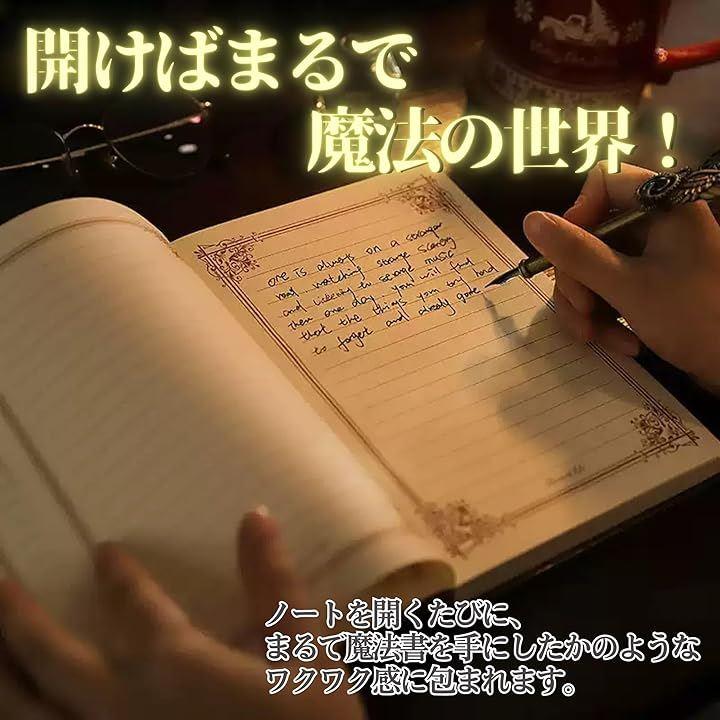 開けばまるで
魔法の世界！
one is always on a stranger
road watching strange scenery
and listening to strange music
Then one day, you will find
that the things you try hard
to forget and already gone
ノートを開くたびに、
まるで魔法書を手にしたかのような
ワクワク感に包まれます。